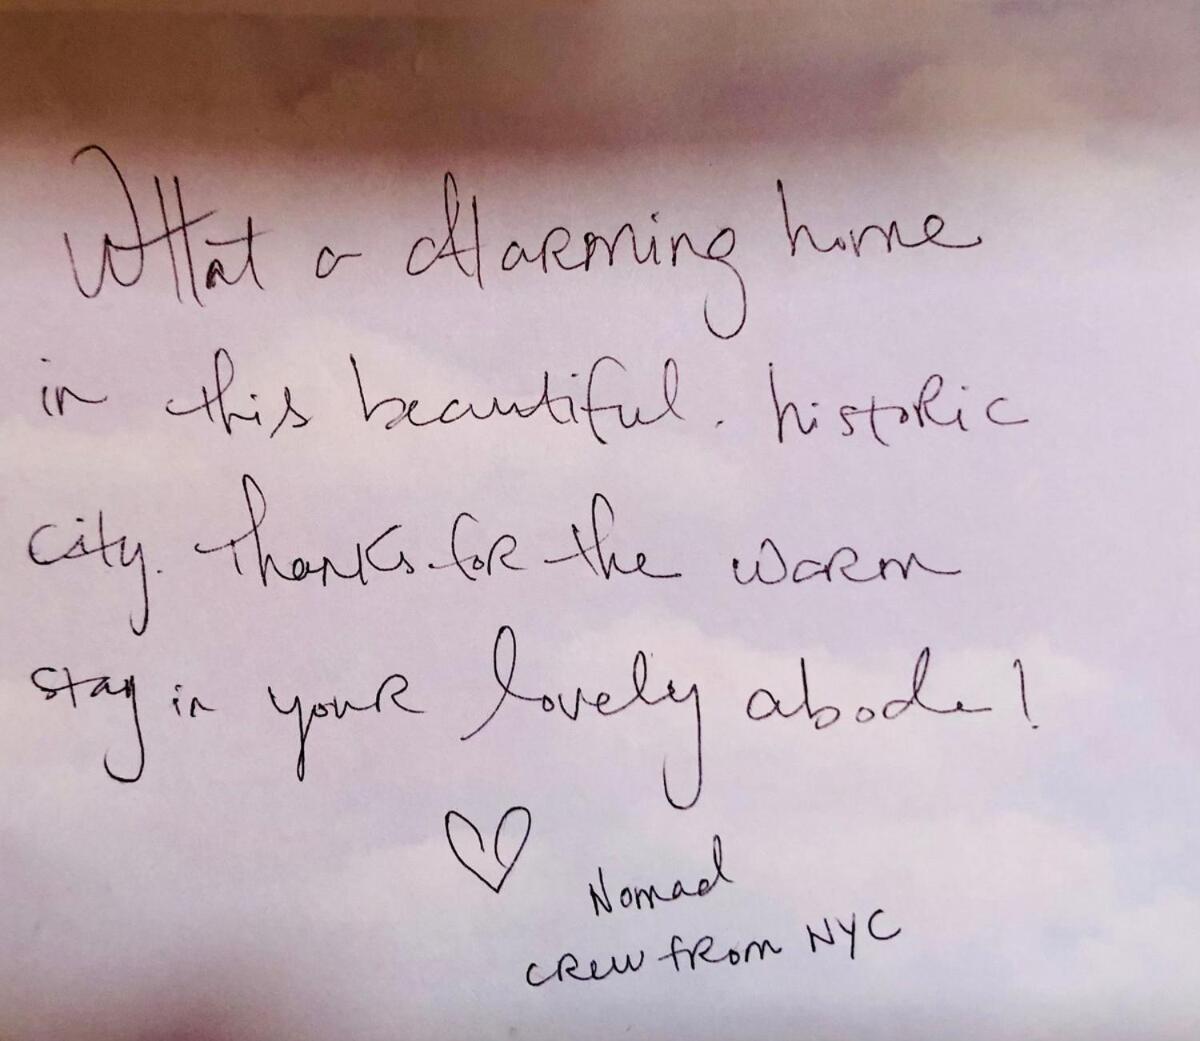 What a charming home
in this beautiful. historic
city. Thanks for the warm
stay in your lovely abode!
Nomad
crew from NYC